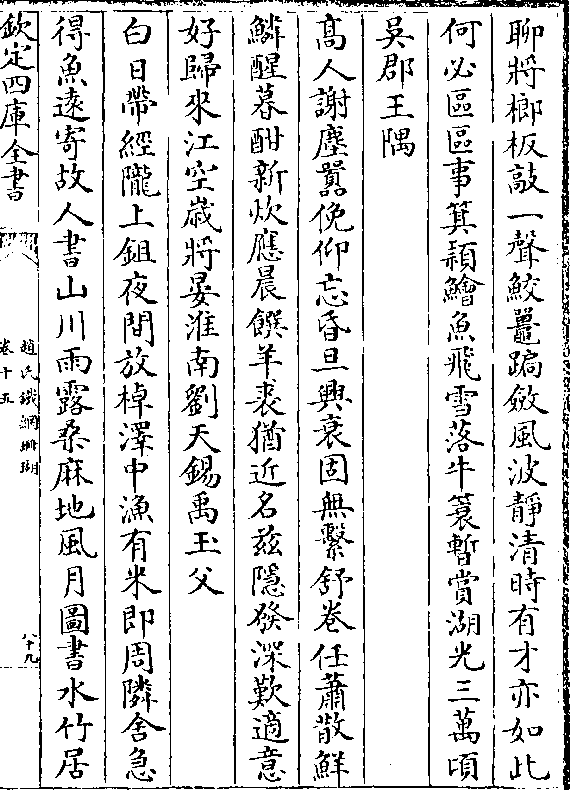 聊將榔板敲一聲鮫鼉蹁斂風波靜清時有才亦如此
何必區區事箕潁鱠魚飛雪落牛簑暫賞湖光三萬頃
吳郡王隅
高人謝塵囂俛仰忘昏旦興衰固無繫舒卷任蕭散鮮
鱗醒暮酣新炊應晨饌羊裘猶近名兹隱發深歎適意
好歸來江空歳將晏淮南劉天錫禹玉父
白日帶經隴上鉏夜間放棹澤中漁有米即周隣舍急
得魚遠寄故人書山川雨露桑麻地風月圖書水竹居
欽定四庫全書
趙氏鐵網珊瑚
卷十五
八十九